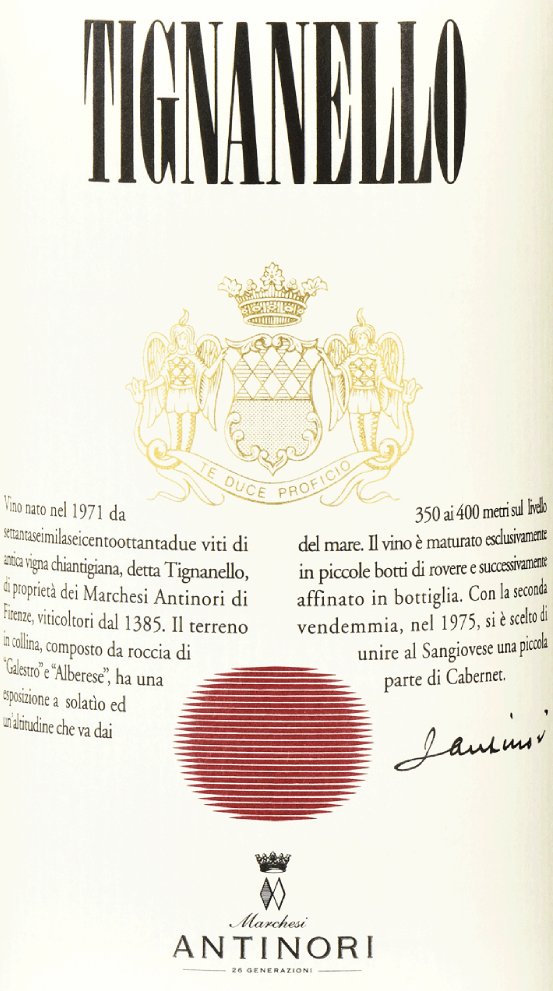 TIGNANELLO
TE DUCE PROFICIO
Vino nato nel 1971 da
settantaseimilaseicentoottantadue viti di
antica vigna chiantigiana, detta Tignanello,
di proprietà dei Marchesi Antinori di
Firenze, viticoltori dal 1385. Il terreno
in collina, composto da roccia di
"Galestro" e "Alberese", ha una
esposizione a solatìo ed
un'altitudine che va dai
350 ai 400 metri sul livello
del mare. Il vino è maturato esclusivamente
in piccole botti di rovere e successivamente
affinato in bottiglia. Con la seconda
vendemmia, nel 1975, si è scelto di
unire al Sangiovese una piccola
parte di Cabernet.
Antinori
Marchesi
ANTINORI
26 GENERAZIONI